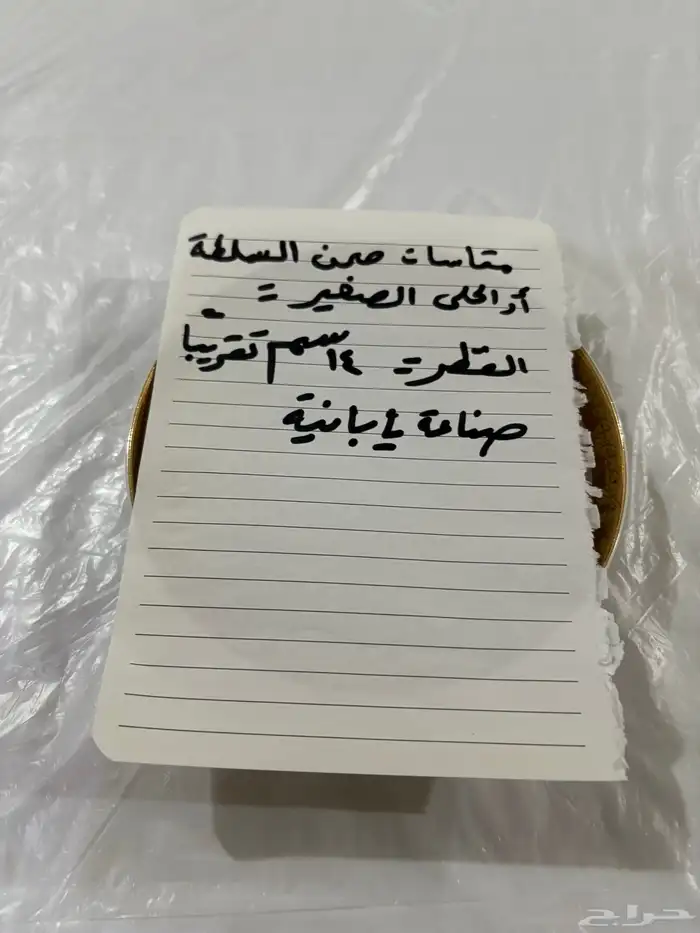 مقاسات صحن السلطة
أو الحلى الصغير =
القطر = ١٤ سم تقريبًا
صناعة يابانية
حراج